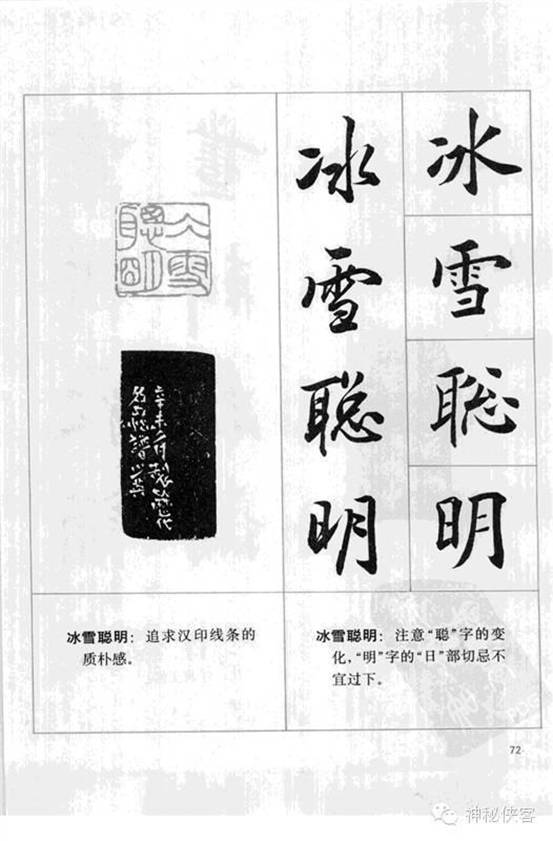 冰雪聪明
冰雪聪明
冰雪聪明
冰雪聪明：追求汉印线条的
质朴感。
冰雪聪明：注意“聪”字的变
化，“明”字的“日”部切忌不
宜过下。
72
神秘侠客